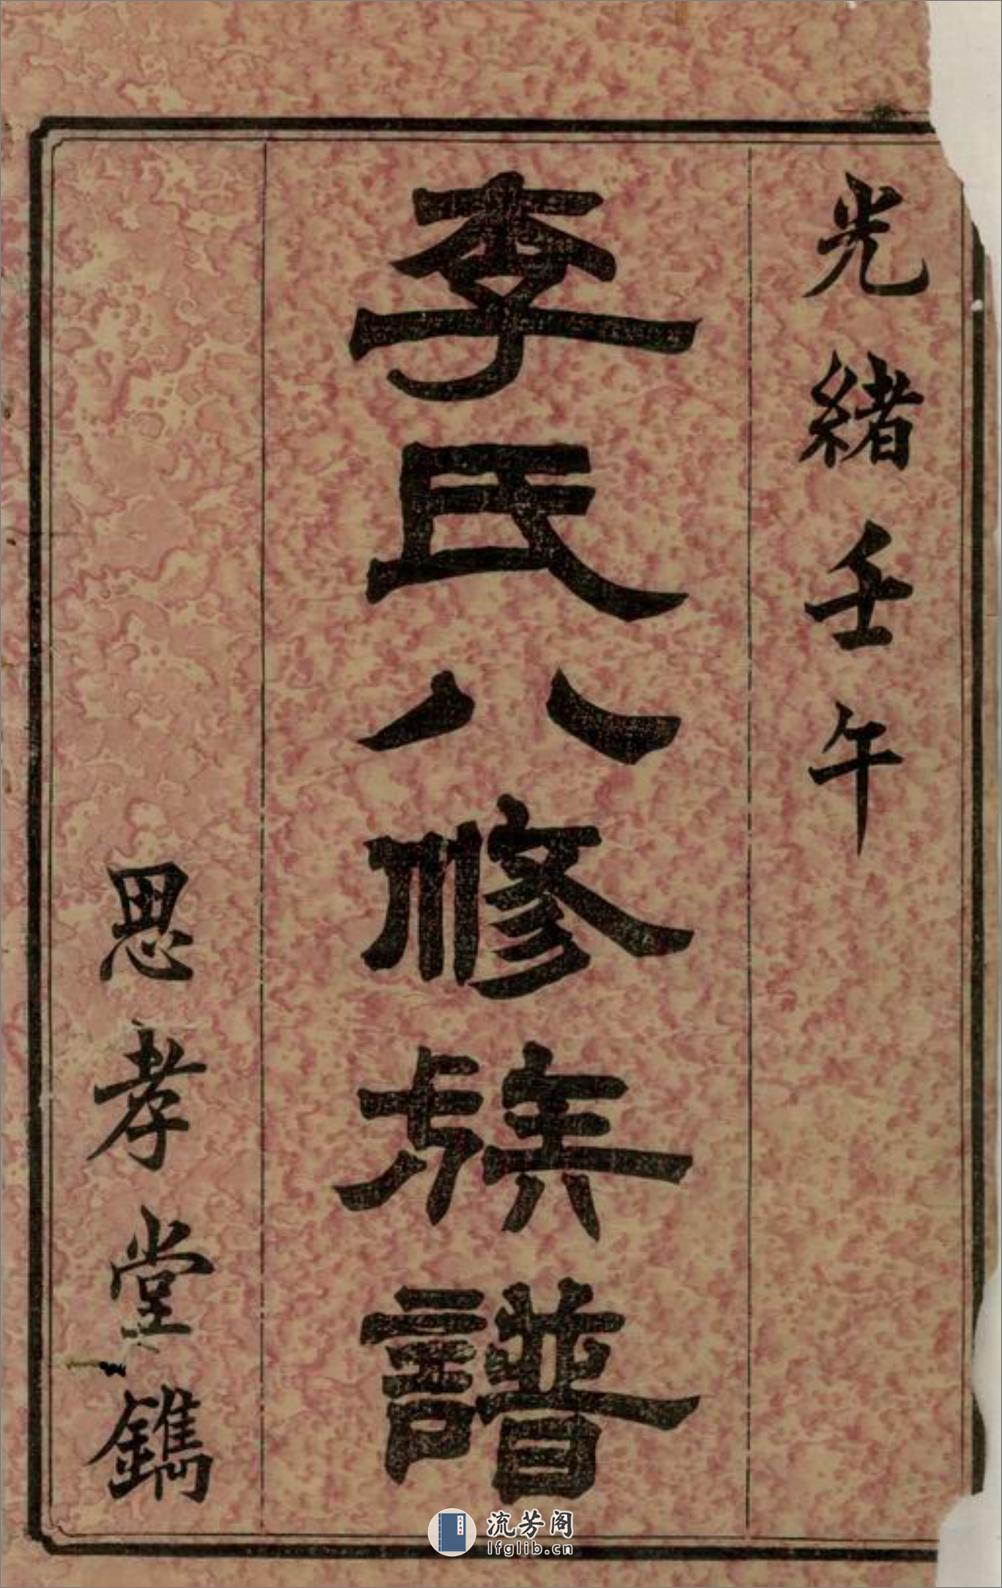 光緒壬午
李氏八修族譜
思孝堂鐫
流芳阁
lfglib.cn